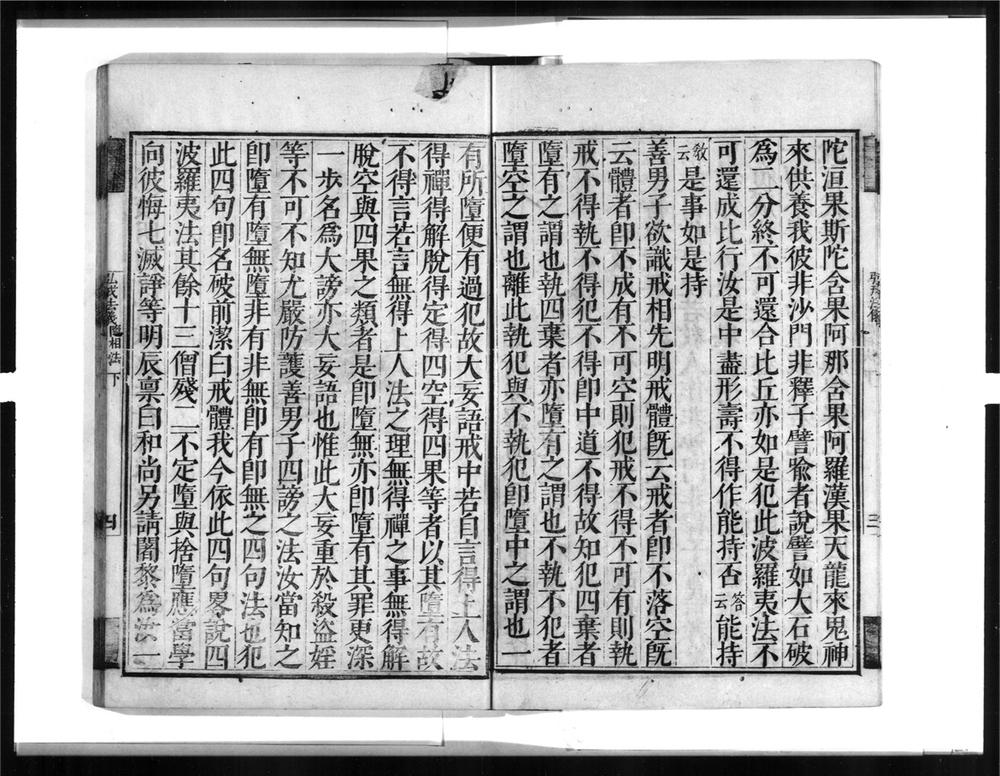 陀洹果斯陀含果阿那含果阿羅漢果天龍來鬼神
來供養我彼非沙門非釋子譬喻者說譬如大石破
爲二分終不可還合比丘亦如是犯此波羅夷法不
可還成比行汝是中盡形壽不得作能持否答云能持
教云是事如是持
善男子欲識戒相先明戒體旣云戒者卽不落空旣
云體者卽不成有不可空則犯戒不得不可有則執
戒不得執不得犯不得卽中道不得故知犯四棄者
墮有之謂也執四棄者亦墮有之謂也不執不犯者
墮空之謂也離此執犯與不執犯卽墮中之謂也一
有所墮便有過犯故大妄語戒中若自言得上人法
得禪得解脫得定得四空得四果等者以其墮有故
不得言若言無得上人法之理無得禪之事無得解
脫空與四果之類者是卽墮無亦卽墮有其罪更深
一步名爲大謗亦大妄語也惟此大妄重於殺盜婬
等不可不知尤嚴防護善男子四謗之法汝當知之
卽墮有墮無墮非有非無卽有卽無之四句法也犯
此四句卽名破前潔白戒體我今依此四句畧說四
波羅夷法其餘十三僧殘二不定墮與捨墮應當學
向彼悔七滅諍等明辰禀白和尚另請闍黎爲汝一
隨相法 下
四
三